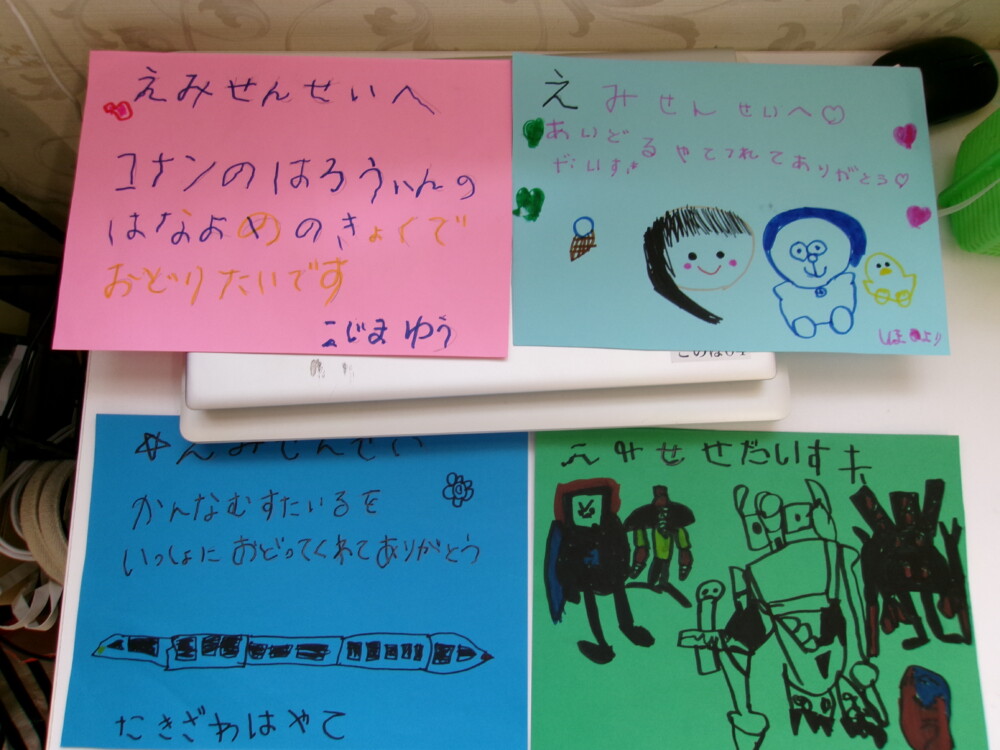 えみせんせいへ
コナンのはろうぃんの
はなよめのきょくで
おどりたいです
こじまゆう
えみせんせいへ♡
あいどるやてつれてありがとう♡
だいすき
しほより
えみせんせい
かんなむすたいるを
いっしょにおどってくれてありがとう
たきざわはやて
えみせせだいすキ